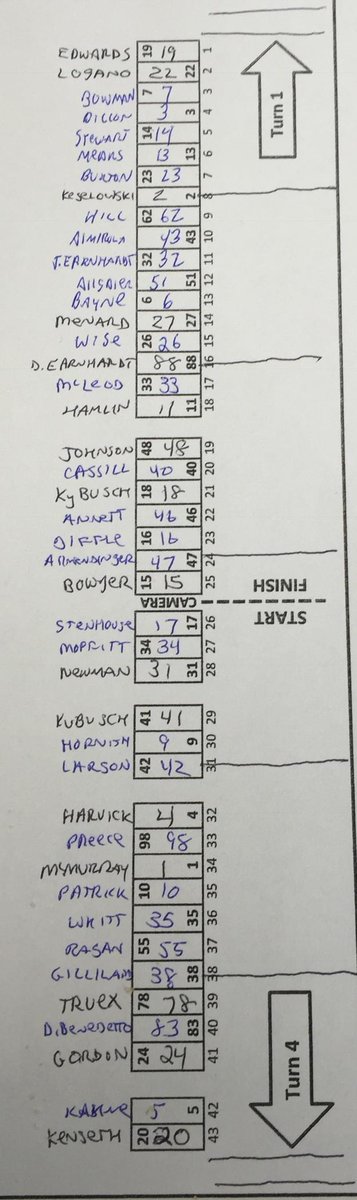 EDWARDS 19 19 1
LOGANO 22 22 2
BOWMAN 7 7 3
DILLON 3 3 4
STEWART 14 14 5
MEARS 13 13 6
BURTON 23 23 7
KESELOWSKI 2 2 8
HILL 62 62 9
ALMIROLA 43 43 10
J.EARNHARDT 32 32 11
Allgaier 51 51 12
BAYNE 6 6 13
MENARD 27 27 14
WISE 26 26 15
D.EARNHARDT 88 88 16
McLEOD 33 33 17
HAMLIN 11 11 18
Turn 1
JOHNSON 48 48 19
CASSILL 40 40 20
KyBUSCH 18 18 21
ANNETT 46 46 22
BIFFLE 16 16 23
Allmendinger 47 47 24
BOWYER 15 15 25
CAMERA
FINISH
START
STENHOUSE 17 17 26
MOFFITT 34 34 27
NEWMAN 31 31 28
KUBUSCH 41 41 29
HORNISH 9 9 30
LARSON 42 42 31
HARVICK 4 4 32
PREECE 98 98 33
McMURRAY 1 1 34
PATRICK 10 10 35
WHITT 35 35 36
RAGAN 55 55 37
GILLILAND 38 38 38
TRUEX 78 78 39
D.BENEDETTO 83 83 40
GORDON 24 24 41
Turn 4
KAHNE 5 5 42
KENSETH 20 20 43